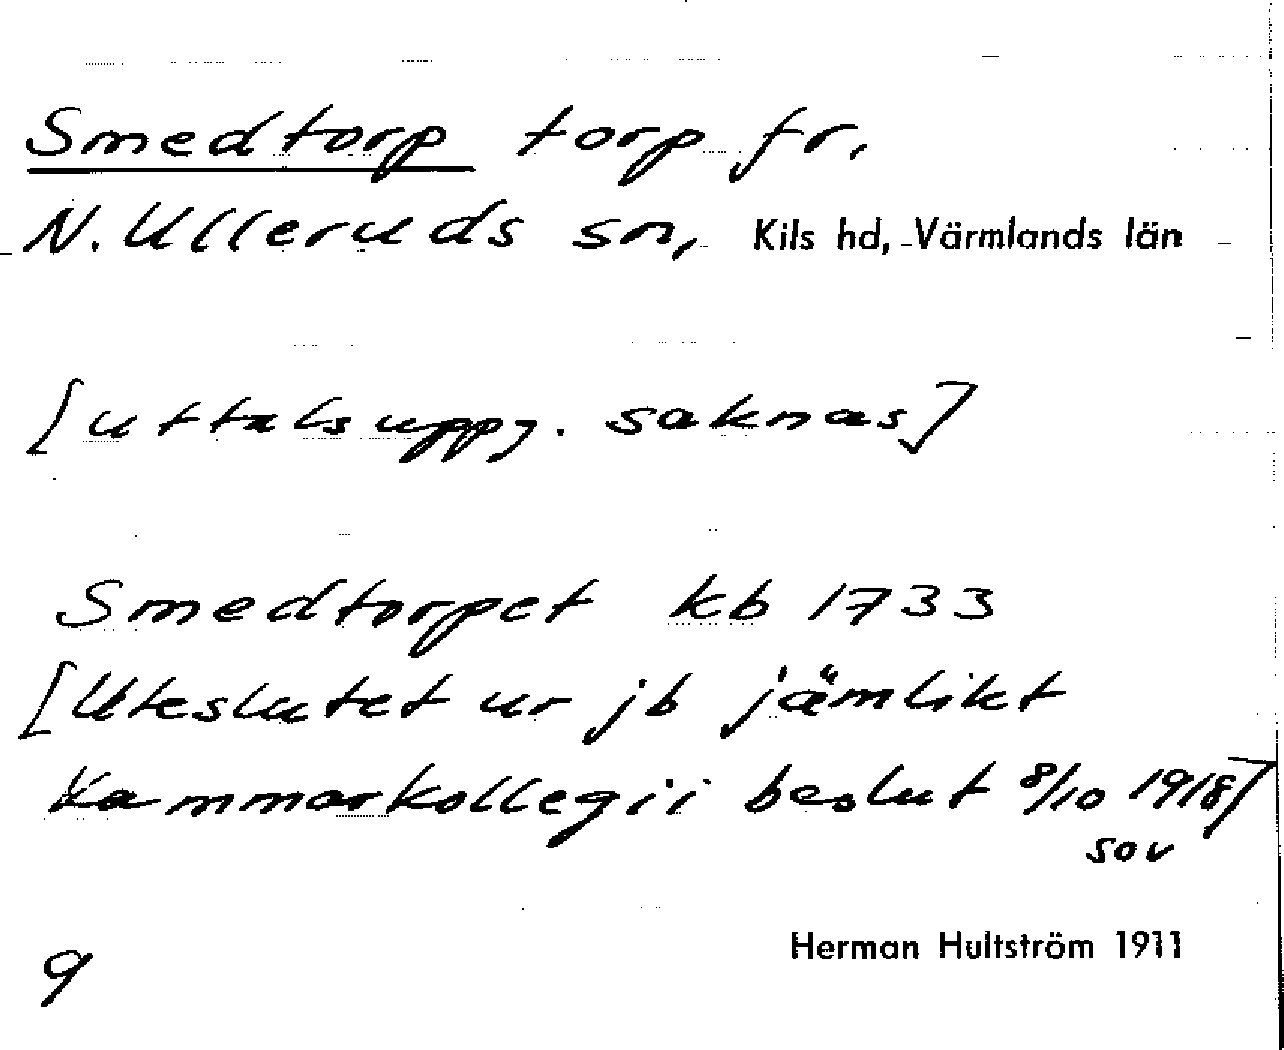 Smedtorp torp fr.
N. Ulleruds sn, Kils hd, Värmlands län
[uttalsuppg. saknas]
Smedtorpet kb 1733
[Uteslutet ur jb jämlikt
Kammarkollegii beslut 8/10 1918]
SOV
Herman Hultström 1911
9